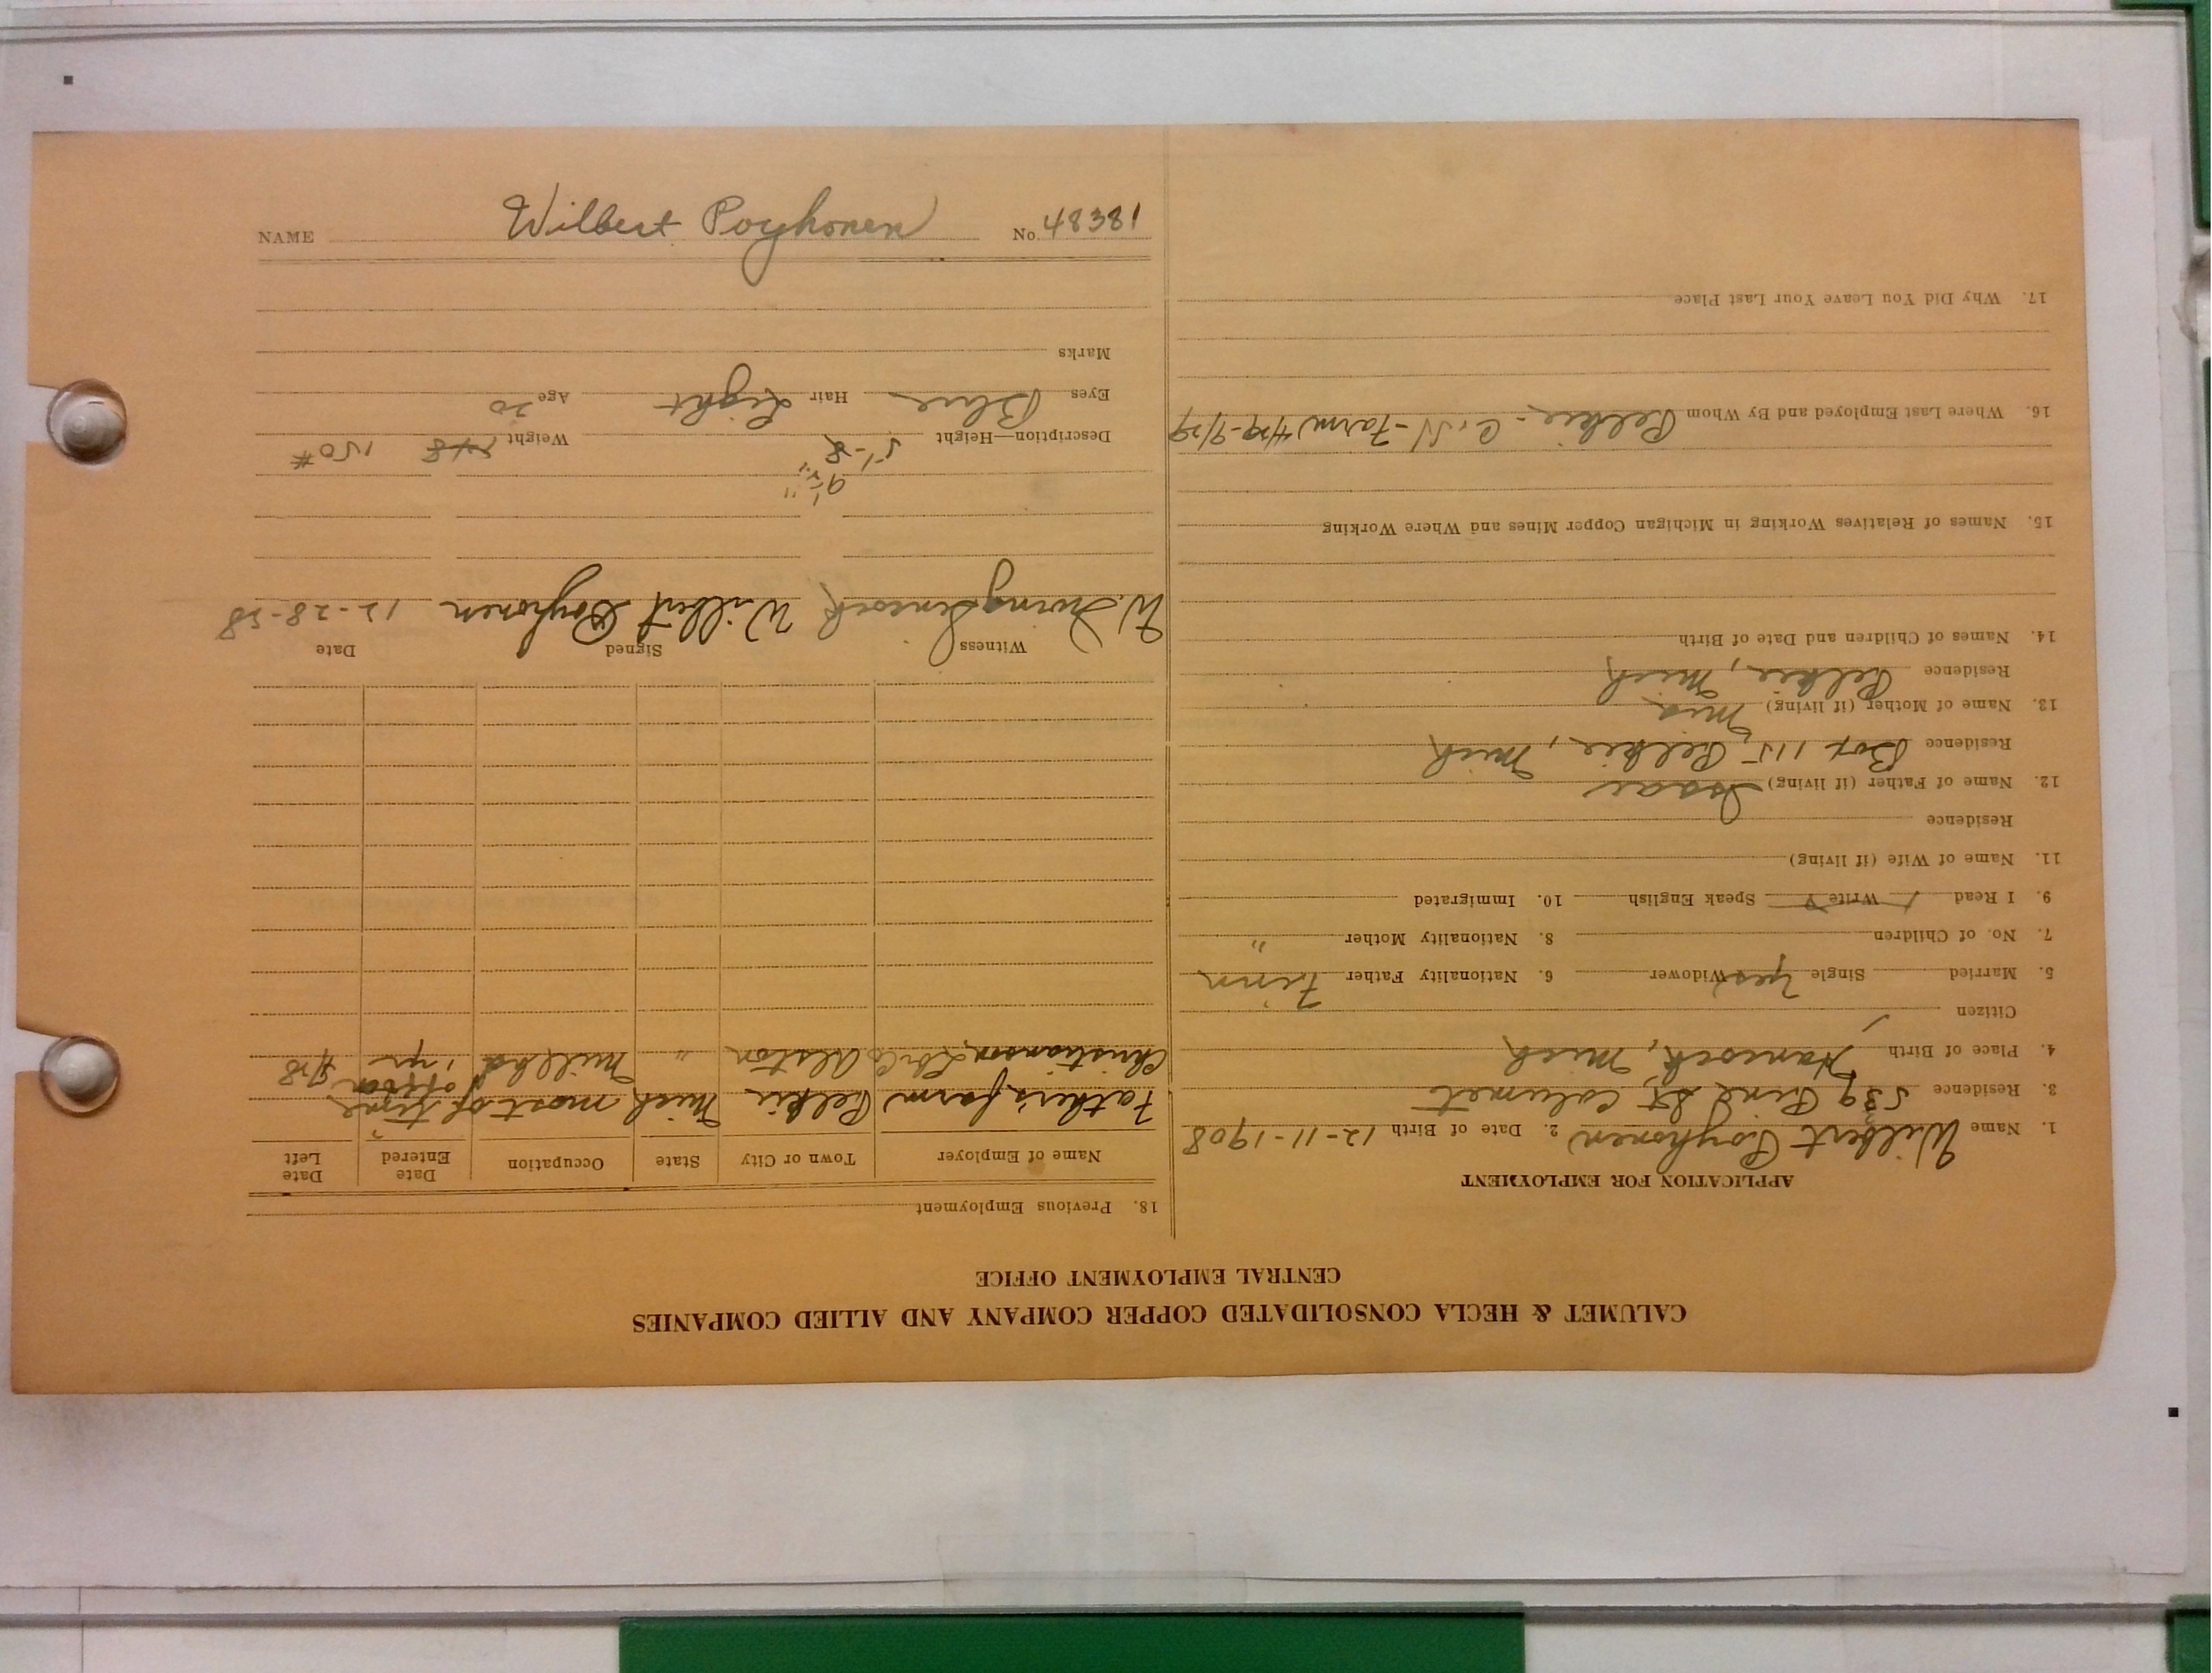 CALUMET & HECLA CONSOLIDATED COPPER COMPANY AND ALLIED COMPANIES
CENTRAL EMPLOYMENT OFFICE
APPLICATION FOR EMPLOYMENT
1. Name Wilbert Poyhonen 2. Date of Birth 12-11-1908
3. Residence 539 Pine St, Calumet
4. Place of Birth Hancock, Mich
Citizen
5. Married Single yes Widower 6. Nationality Father Finn
7. No. of Children 8. Nationality Mother "
9. I Read Write Speak English 10. Immigrated
11. Name of Wife (if living)
Residence
12. Name of Father (if living) Isaac
Residence Box 115, Pelkie, Mich
13. Name of Mother (if living)
Residence Pelkie, Mich
14. Names of Children and Date of Birth
15. Names of Relatives Working in Michigan Copper Mines and Where Working
16. Where Last Employed and By Whom Pelkie - C&H - Farm 4/29-9/29
17. Why Did You Leave Your Last Place
18. Previous Employment
Name of Employer Town or City State Occupation Date Entered Date Left
Father's farm Pelkie Mich most of time
Christianson Alston " off & on 1 yr
Witness Signed Date
W. Irving Wilbert Poyhonen 12-28-28
9 1/2"
Description—Height 5'-8 Weight 148 150#
Eyes Blue Hair Light Age 20
Marks
NAME Wilbert Poyhonen No. 48381